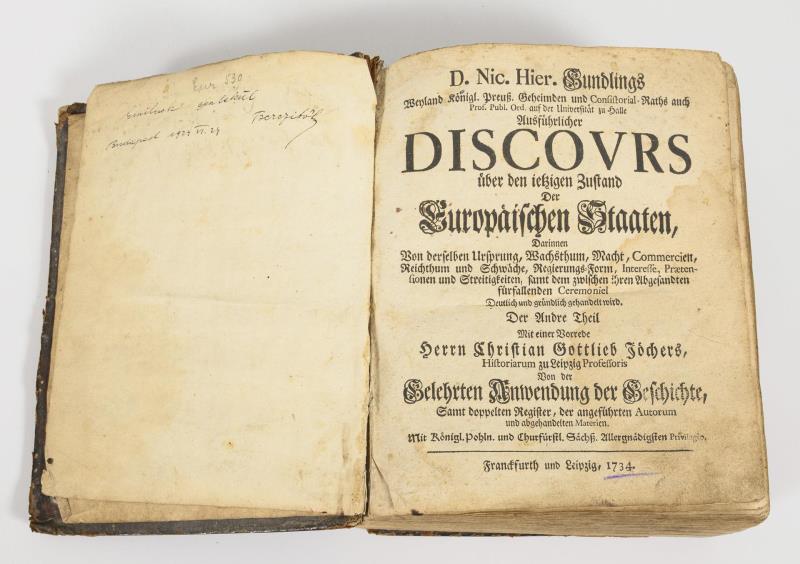 Eur 530
Emlékül
Budapest 1924 VI. 24
D. Nic. Hier. Gundlings
Weyland Königl. Preuß. Geheimden und Consistorial-Raths auch
Prof. Publ. Ord. auf der Universität zu Halle
Ausführlicher
DISCOVRS
über den ietzigen Zustand
Der
Europäischen Staaten,
Darinnen
Von derselben Ursprung, Wachsthum, Macht, Commercien,
Reichthum und Schwäche, Regierungs-Form, Interesse, Præten-
sionen und Streitigkeiten, samt dem zwischen ihren Abgesandten
fürfallenden Ceremoniel
Deutlich und gründlich gehandelt wird.
Der Andre Theil
Mit einer Vorrede
Herrn Christian Gottlieb Jöchers,
Historiarum zu Leipzig Professoris
Von der
Gelehrten Anwendung der Geschichte,
Samt doppelten Register, der angeführten Autorum
und abgehandelten Materien.
Mit Königl. Pohln. und Churfürstl. Sächß. Allergnädigsten Privilegio.
Franckfurth und Leipzig, 1734.